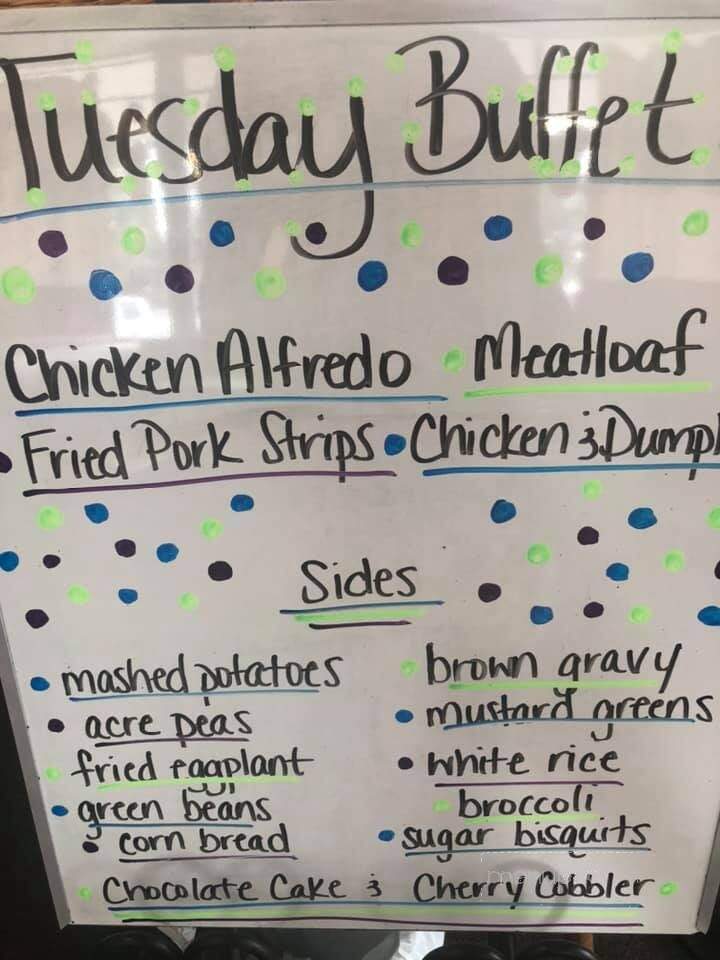 Tuesday Buffet
Chicken Alfredo Meatloaf
Fried Pork Strips Chicken & Dumpl
Sides
mashed potatoes brown gravy
acre peas mustard greens
fried eggplant white rice
green beans broccoli
corn bread sugar bisquits
Chocolate Cake & Cherry Cobbler